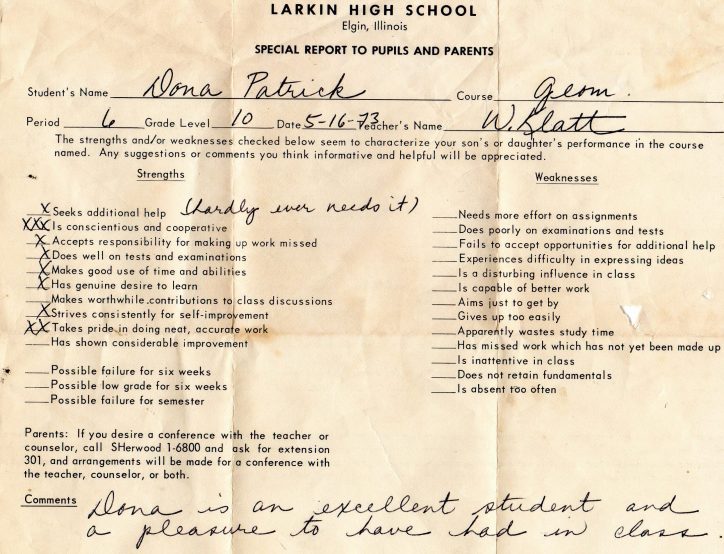 LARKIN HIGH SCHOOL
Elgin, Illinois
SPECIAL REPORT TO PUPILS AND PARENTS
Student's Name Dona Patrick Course Geom.
Period 6 Grade Level 10 Date 5-16-73 Teacher's Name W. Klatt
The strengths and/or weaknesses checked below seem to characterize your son's or daughter's performance in the course
named. Any suggestions or comments you think informative and helpful will be appreciated.
Strengths
X Seeks additional help (hardly ever needs it)
XXX Is conscientious and cooperative
X Accepts responsibility for making up work missed
X Does well on tests and examinations
X Makes good use of time and abilities
X Has genuine desire to learn
Makes worthwhile contributions to class discussions
X Strives consistently for self-improvement
XX Takes pride in doing neat, accurate work
Has shown considerable improvement
Possible failure for six weeks
Possible low grade for six weeks
Possible failure for semester
Weaknesses
Needs more effort on assignments
Does poorly on examinations and tests
Fails to accept opportunities for additional help
Experiences difficulty in expressing ideas
Is a disturbing influence in class
Is capable of better work
Aims just to get by
Gives up too easily
Apparently wastes study time
Has missed work which has not yet been made up
Is inattentive in class
Does not retain fundamentals
Is absent too often
Parents: If you desire a conference with the teacher or
counselor, call SHerwood 1-6800 and ask for extension
301, and arrangements will be made for a conference with
the teacher, counselor, or both.
Comments Dona is an excellent student and
a pleasure to have had in class.